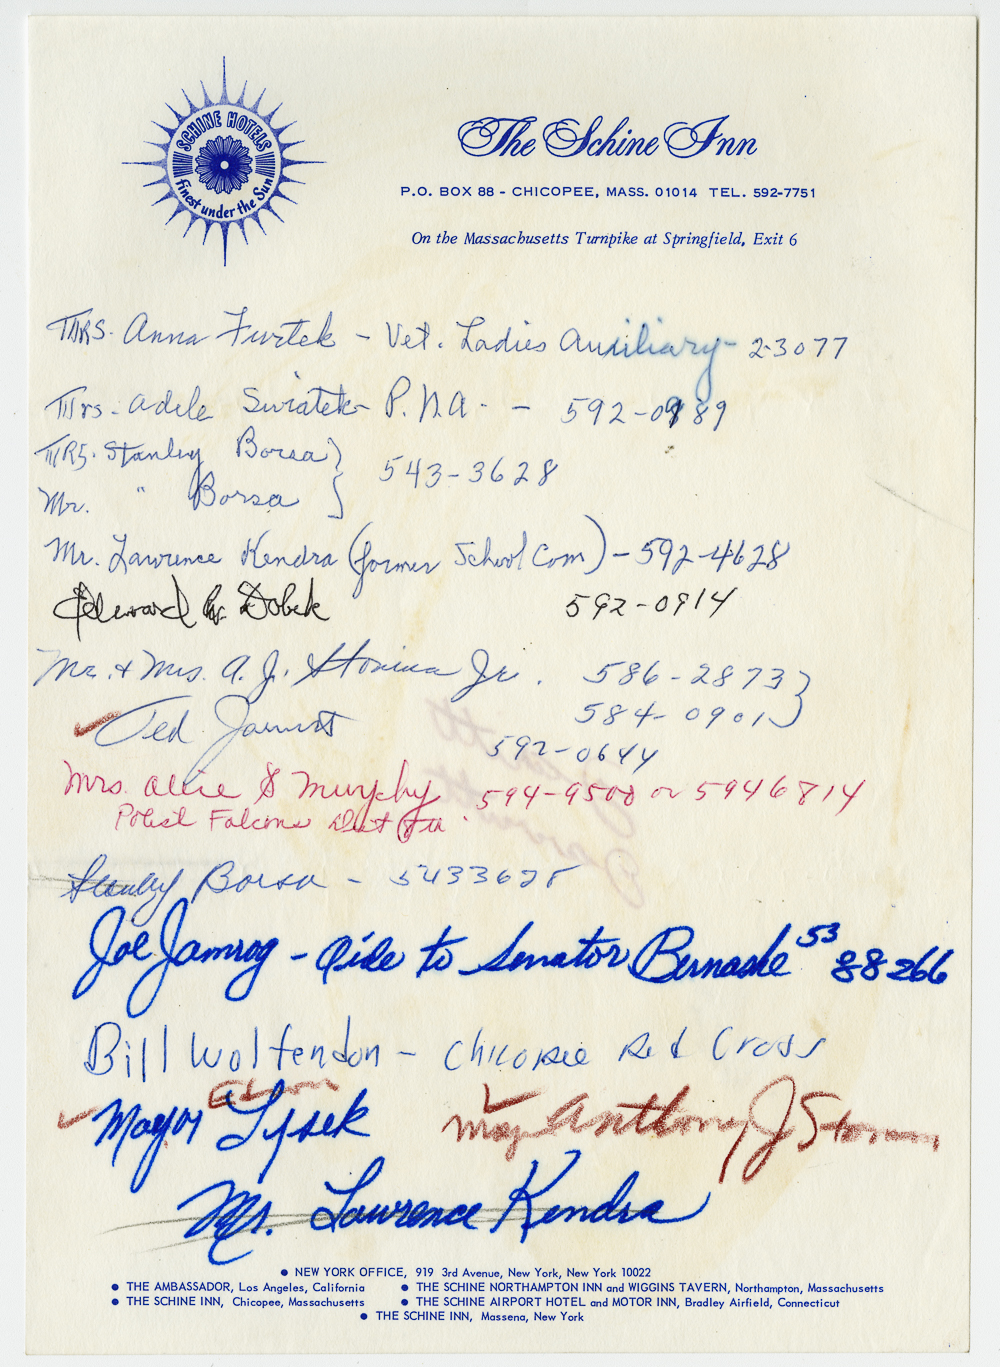 SCHINE HOTELS
finest under the Sun
The Schine Inn
P.O. BOX 88 - CHICOPEE, MASS. 01014 TEL. 592-7751
On the Massachusetts Turnpike at Springfield, Exit 6
Mrs. Anna Furtek - Vet. Ladies Auxiliary - 2-3077
Mrs. Adele Swiatek P.N.A. - 592-0989
MRS. Stanley Borsa }
Mr. " Borsa } 543-3628
Mr. Lawrence Kendra (former School Com) - 592-4628
Edward Dobek 592-0914
Mr. & Mrs. A. J. Stonina Jr. 586-2873 }
584-0901 }
Ted 592-0644
Mrs. Allie S Murphy 594-9500 or 5946814
Falcons
Stanley Borsa - 5433628
Joe Jamrog - Aide to Senator Bernashe 53 88266
Bill Wolfendon - Chicopee Red Cross
Edwin
Mayor Lysek
Anthony J
Mr. Lawrence Kendra
● NEW YORK OFFICE, 919 3rd Avenue, New York, New York 10022
● THE AMBASSADOR, Los Angeles, California ● THE SCHINE NORTHAMPTON INN and WIGGINS TAVERN, Northampton, Massachusetts
● THE SCHINE INN, Chicopee, Massachusetts ● THE SCHINE AIRPORT HOTEL and MOTOR INN, Bradley Airfield, Connecticut
● THE SCHINE INN, Massena, New York